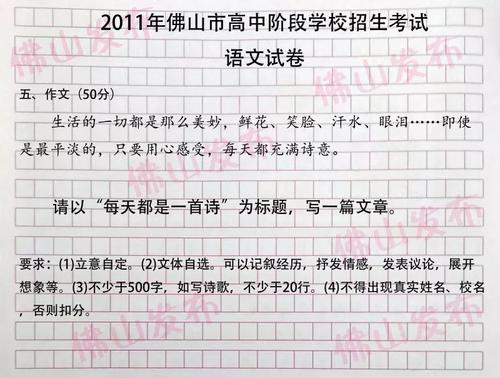 2011年佛山市高中阶段学校招生考试
语文试卷
五、作文（50分）
生活的一切都是那么美妙，鲜花、笑脸、汗水、眼泪……即使
是最平淡的，只要用心感受，每天都充满诗意。
请以“每天都是一首诗”为标题，写一篇文章。
要求：(1)立意自定。(2)文体自选。可以记叙经历，抒发情感，发表议论，展开
想象等。(3)不少于500字，如写诗歌，不少于20行。(4)不得出现真实姓名、校名
，否则扣分。
佛山发布
佛山发布
佛山发布
佛山发布
佛山发布
佛山发布